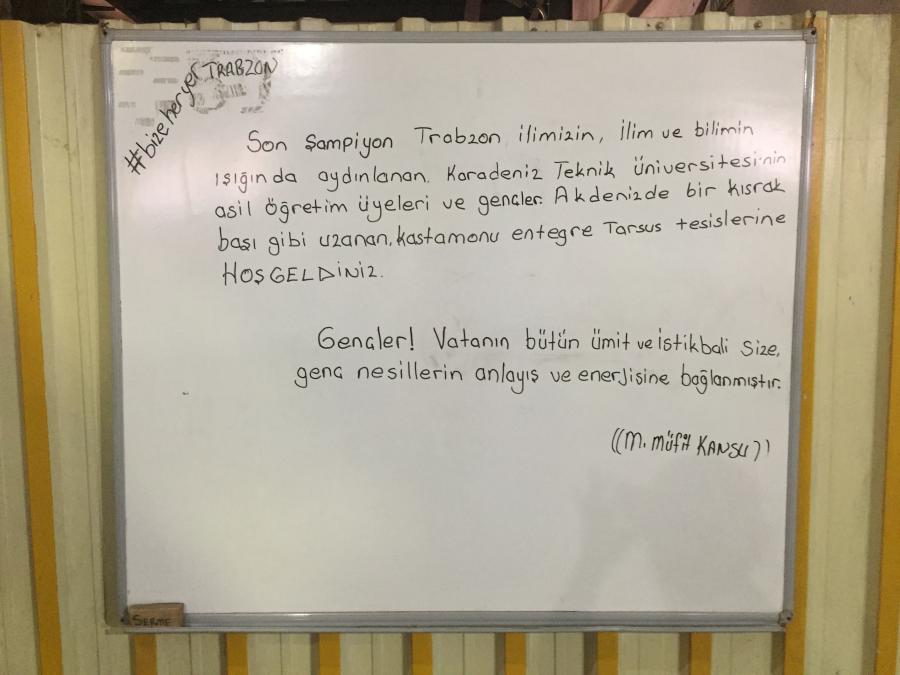 #bizeheryer TRABZON
Son Şampiyon Trabzon ilimizin, ilim ve bilimin
ışığında aydınlanan. Karadeniz Teknik üniversitesi'nin
asil öğretim üyeleri ve gençler. Akdenizde bir kısrak
başı gibi uzanan, Kastamonu entegre Tarsus tesislerine
HOŞGELDİNİZ.
Gençler! Vatanın bütün ümit ve istikbali size,
genç nesillerin anlayış ve enerjisine bağlanmıştır.
((M. Müfit KANSU))
SERME